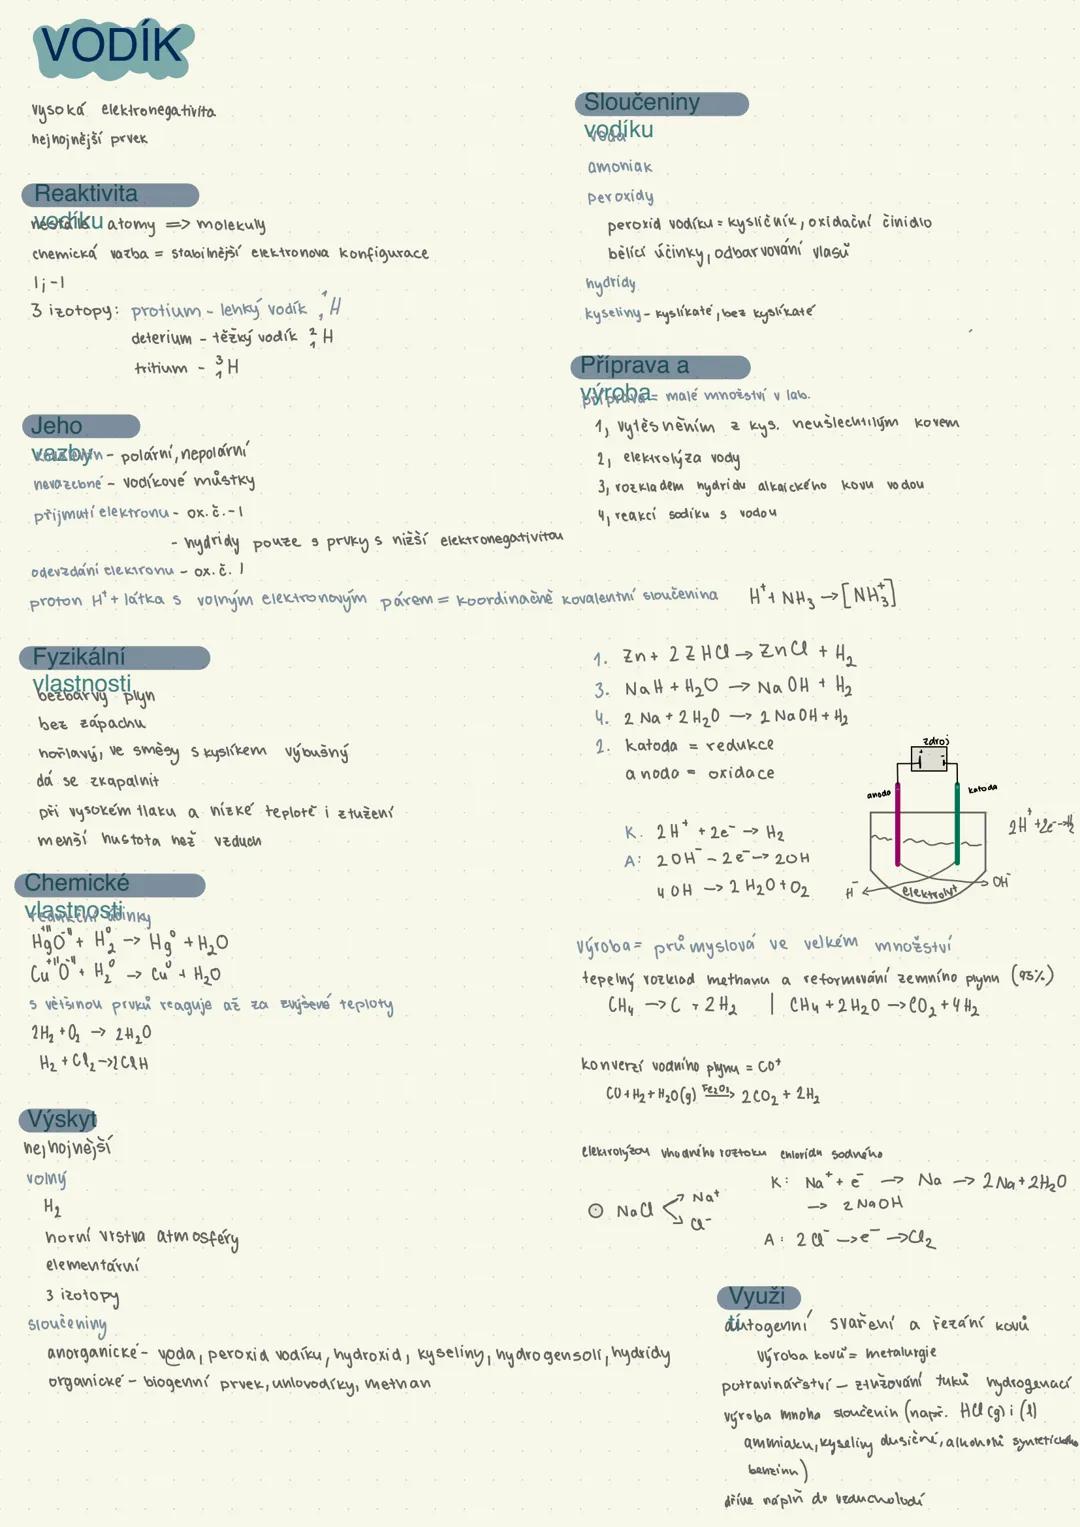 VODÍK
vysoká elektronegativita
nejhojnější prvek
Reaktivita
vodíku
nestálé atomy => molekuly
chemická vazba = stabilnější elektronova konfigurace
1; -1
3 izotopy: protium - lehký vodík ¹₁H
deterium - těžký vodík ²₁H
tritium - ³₁H
Jeho
vazby
- polární, nepolární
nevazebné - vodíkové můstky
přijmutí elektronu - ox. č. -1
- hydridy pouze s prvky s nižší elektronegativitou
odevzdání elektronu - ox. č. 1
proton H⁺ + látka s volným elektronovým párem = koordinačně kovalentní sloučenina H⁺ + NH₃ → [NH₃⁺]
Fyzikální
vlastnosti
bezbarvý plyn
bez zápachu
hořlavý, ve směsy s kyslíkem výbušný
dá se zkapalnit
při vysokém tlaku a nízké teplotě i ztužení
menší hustota než vzduch
Chemické
vlastnosti
redukční účinky
Hg⁺ᴵᴵO⁻ᴵᴵ + H₂⁰ → Hg⁰ + H₂O
Cu⁺ᴵᴵO⁻ᴵᴵ + H₂⁰ → Cu⁰ + H₂O
s většinou prvků reaguje až za zvýšené teploty
2H₂ + O₂ → 2H₂O
H₂ + Cl₂ → 2ClH
Výskyt
nejhojnější
volný
H₂
horní vrstva atmosféry
elementární
3 izotopy
sloučeniny
anorganické - voda, peroxid vodíku, hydroxid, kyseliny, hydrogensoli, hydridy
organické - biogenní prvek, uhlovodíky, methan
Sloučeniny
vodíku
voda
amoniak
peroxidy
peroxid vodíku = kysličník, oxidační činidlo
bělící účinky, odbarvování vlasů
hydridy
kyseliny - kyslíkaté, bez kyslíkaté
Příprava a
výroba
příprava = malé množství v lab.
1, vytěsněním z kys. neušlechtilým kovem
2, elektrolýza vody
3, rozkladem hydridu alkaického kovu vodou
4, reakcí sodíku s vodou
1. Zn + 2 Z HCl → ZnCl + H₂
3. NaH + H₂O → NaOH + H₂
4. 2 Na + 2 H₂O → 2 NaOH + H₂
2. katoda = redukce
anoda = oxidace
K. 2H⁺ + 2e⁻ → H₂
A: 2OH⁻ - 2e⁻ → 2OH
4OH → 2H₂O + O₂
zdroj
anoda
katoda
2H⁺ + 2e⁻ → H₂
H⁻
elektrolyt
OH⁻
výroba = průmyslová ve velkém množství
tepelný rozklad methanu a reformování zemního plynu (95%)
CH₄ → C + 2H₂ | CH₄ + 2H₂O → CO₂ + 4H₂
konverzí vodního plynu = CO⁺
CO + H₂ + H₂O(g) Fe₂O₃→ 2CO₂ + 2H₂
elektrolýzou vhodného roztoku chloridu sodného
K: Na⁺ + e⁻ → Na → 2Na + 2H₂O
→ 2NaOH
NaCl Na⁺
Cl⁻
A: 2Cl⁻ → e⁻ → Cl₂
Využi
tí
autogenní svaření a řezání kovů
výroba kovů = metalurgie
potravinářství - ztužování tuků hydrogenací
výroba mnoha sloučenin (např. HCl (g) i (l)
ammiaku, kyseliny dusičné, alkoholů syntetického
benzinu)
dříve náplň do vzducholodí